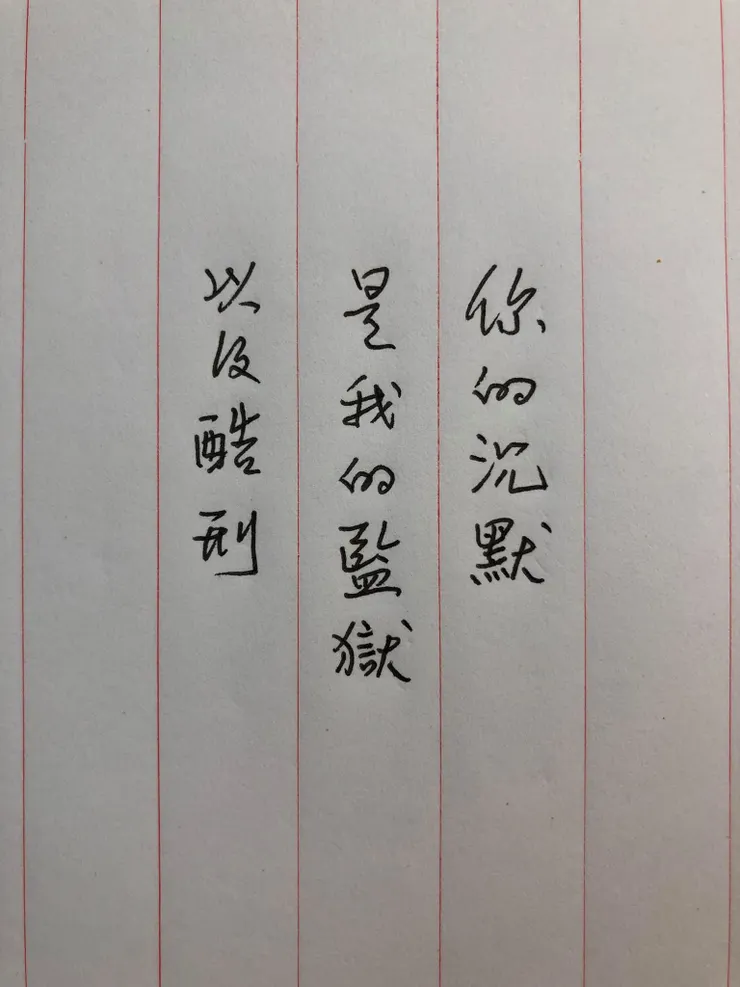 你的沉默
是我的監獄
以及酷刑